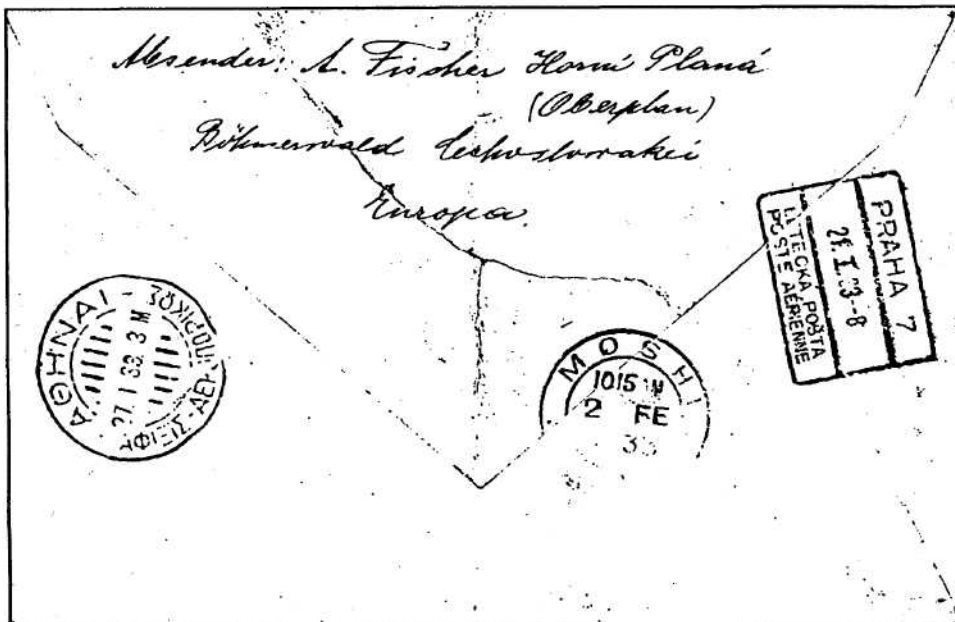 Absender: A. Fischer Horní Planá
(Oberplan)
Böhmerwald Čechoslowakei
Europa.
PRAHA 7
I 33--8
LETECKÁ POŠTA
POSTE AÉRIENNE
ΑΘΗΝΑΙ -
27. 1 33. 3 M
ΑΦΙΞΙΣ - ΑΕΡ
MOSHI
1015
2 FE
33